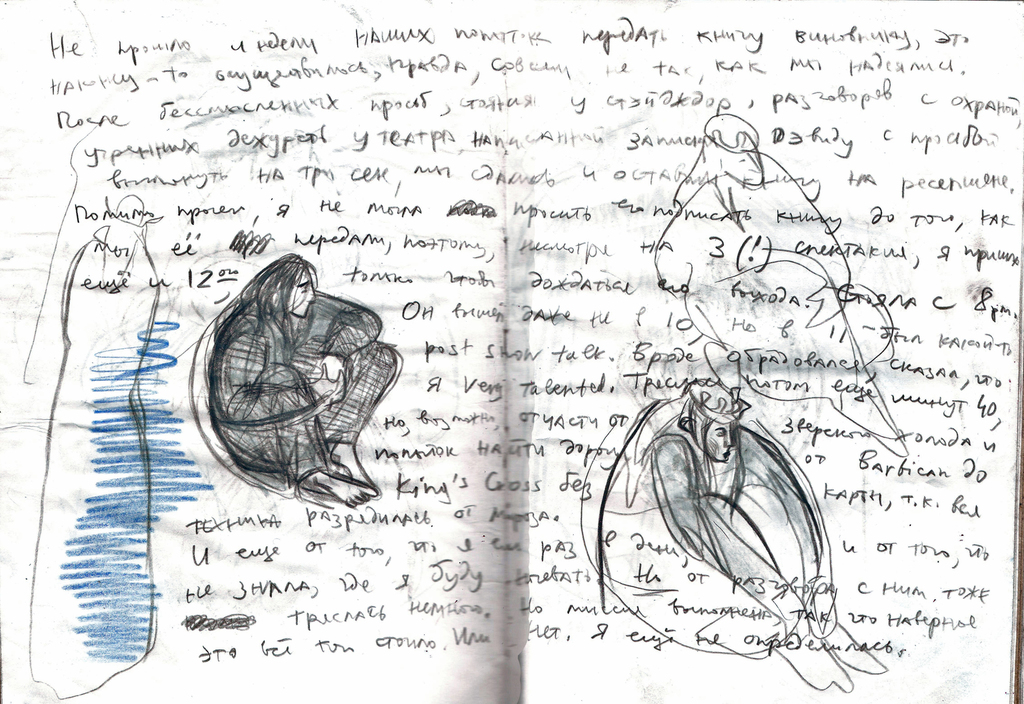 Не прошло и недели наших попыток передать книгу виновнику, это
наконец-то осуществилось, правда, совсем не так, как мы надеялись.
После бессмысленных просьб, стояния у стэйдждор, разговоров с охраной,
утренних дежурств у театра, написанной записки Дэвиду с просьбой
выглянуть на три сек, мы сдались и оставили книгу на ресепшене.
Помимо прочего, я не могла просить его подписать книгу до того, как
мы её передали, поэтому, несмотря на 3 (!) спектакля, я пришла
ещё и 12ого только чтобы дождаться его выхода. Стояла с 8pm.
Он вышел даже не в 10, но в 11, был какой-то
post show talk. Вроде обрадовался, сказал, что
я very talented. Тряслась потом еще минут 40,
но, возможно, отчасти от зверского холода и
попыток найти дорогу от Barbican до
King's Cross без карты, т.к. вся
техника разрядилась от мороза.
И еще от того, что я ем раз в день, и от того, что
не знала, где я буду ночевать. Но от разговора с ним тоже
тряслась немного. Но миссия выполнена так что наверное
это всё того стоило. Или нет. Я ещё не определилась.